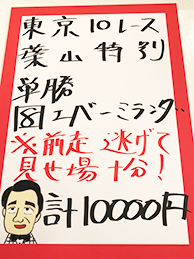 東京10レース
葉山特別
単勝
⑧エバーミランダ
※前走 逃げて
見せ場十分!
計10000円